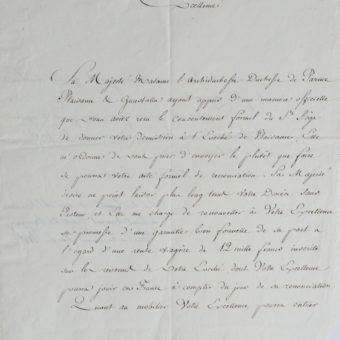 Excellence
Sa Majesté Madame l'Archiduchesse Duchesse de Parme
Plaisance & Guastalla ayant appris d'une manière officielle
que vous aviez reçu le consentement formel du St Siège
de donner votre démission à l'Evêché de Plaisance, Elle
m'ordonne de vous prier d'envoyer le plutôt que faire
se pourra votre acte formel de renonciation. Sa Majesté
désire ne point laisser plus long tems votre Diocèse sans
Pasteur et Elle me charge de renouveller à Votre Excellence
sa promesse d'une garantie bien formelle de sa part à
l'égard d'une rente viagère de 12 mille francs inscrite
sur les revenus de Votre Evêché dont Votre Excellence
pourra jouir en France à compter du jour de sa renonciation.
Quant au mobilier Votre Excellence pourra entrer